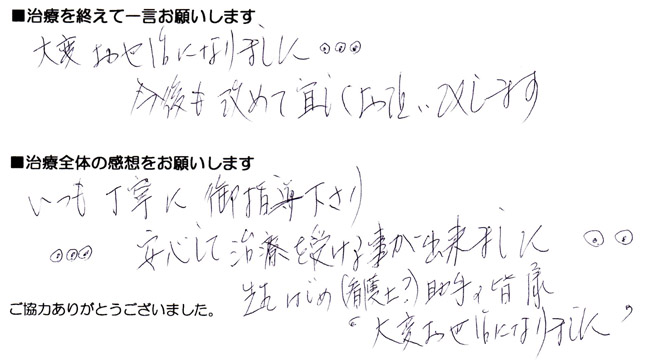 ■治療を終えて一言お願いします
大変お世話になりました ◎◎◎
今後も改めて宜しくお願い致します
■治療全体の感想をお願いします
いつも丁寧に御指導下さり
◎◎◎ 安心して治療を受ける事が出来ました ◎◎
先生はじめ(看護士?)助手の皆様
ご協力ありがとうございました。
“大変お世話になりました”